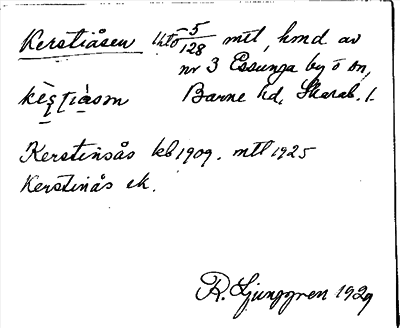 Kerstiåsen Utö 5/128 mtl, hmd. av
nr 3 Essunga by o sn,
Barne hd, Skarab. l.
Kerstinsås kb 1909. mtl 1925
Kerstinås ek.
R. Ljunggren 1929